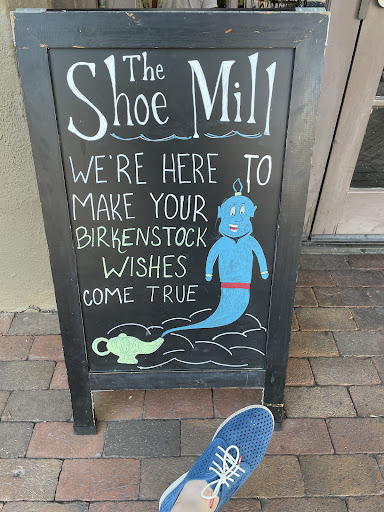 The
Shoe Mill
WE'RE HERE TO
MAKE YOUR
BIRKENSTOCK
WISHES
COME TRUE